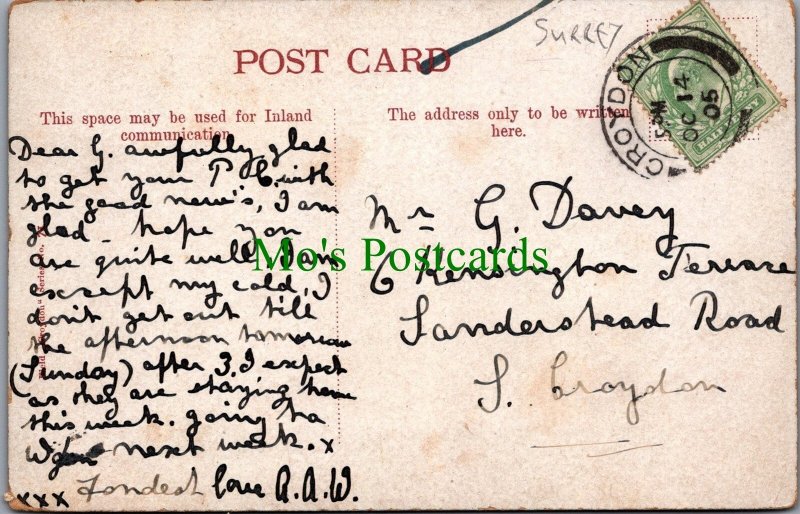 SURREY
POST CARD
CROYDON
5 PM
OC 14
05
HALFPENNY
This space may be used for Inland
communication.
The address only to be written
here.
Dear G. awfully glad
to get your P C. with
the good new's, I am
glad - hope you
are quite well I am
except my cold, I
don't get out till
the afternoon tomorrow
(Sunday) after 3. I expect
as they are staying home
this week. going to
next week. x
xxx Fondest love A.A.W.
Mr G. Davey
6 Kensington Terrace
Sanderstead Road
S. Croydon
Mo's Postcards